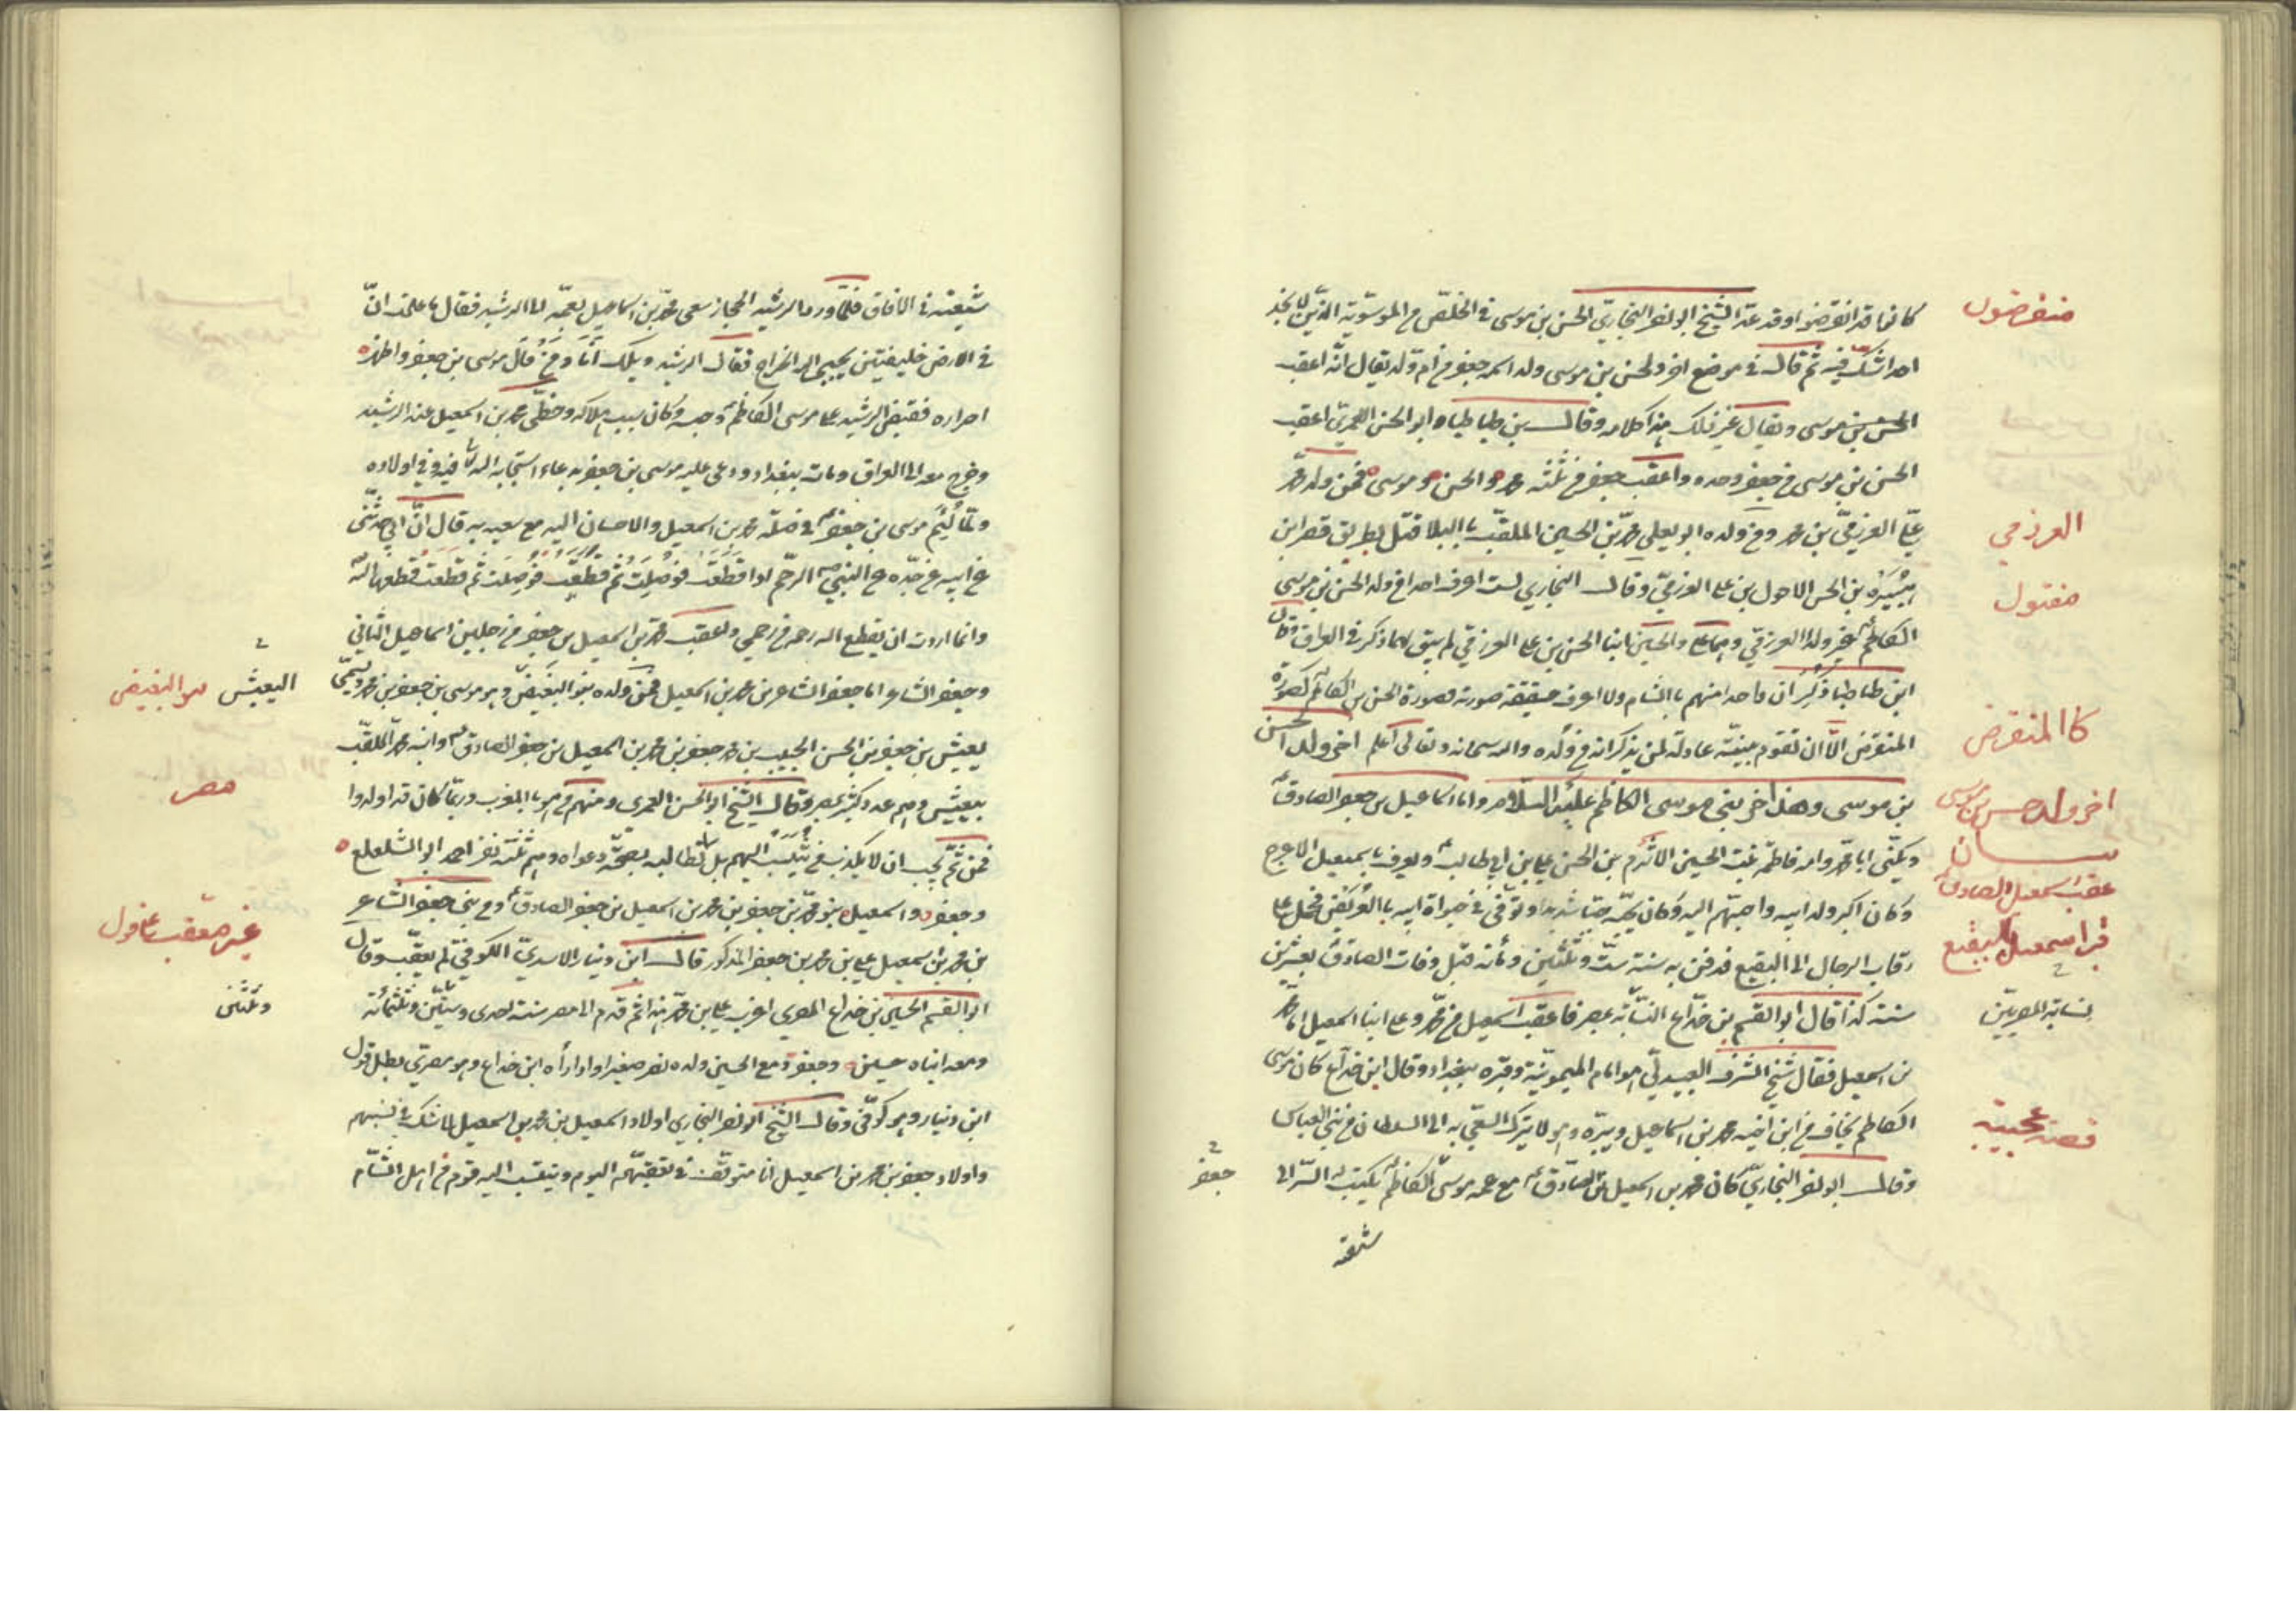 كانوا قد انقرضوا وقد عدّ الشيخ ابو نصر البخاري الحسن بن موسى في الخلّص من الموسويّة الذين لا يجد
منقرضون
احدا شكّ فيه ثم قال في موضع اخر ولحسن بن موسى ولد اسمه جعفر من ام ولد يقال انّه اعقب
الحسن بن موسى ويقال غير ذلك هذا كلامه وقال بن طباطبا وابو الحسن العمري اعقب
الحسن بن موسى من جعفر وحده واعقب جعفر من ثلثة محمد والحسن وموسى فمن ولد محمد
عليّ العرزميّ بن محمد ومن ولده ابو يعلى محمّد بن الحسين الملقّب بالبلا قتل بطريق قصر ابن
العرزمي
هبيره بن الحسن الاحول بن علي العرزميّ وقال البخاري لست اعرف احدا من ولد الحسن بن موسى
مقتول
الكاظم غير ولد العرزمي وهما علي والحسين ابنا الحسن بن علي العرزمي لم يبق لهما ذكر في العراق وقال
ابن طباطبا ذكر ان واحدا منهم بالشام ولا اعرف حقيقة صورته فصورة الحسن بن الكاظم كصورة
المنقرض الّا ان تقوم بيّنة عادلة لمن يذكر انه من ولده والله سبحانه وتعالى اعلم اخر ولد الحسن
كالمنقرض
بن موسى وهذا اخر بني موسى الكاظم عليه السلام واما اسماعيل بن جعفر الصادق
اخر ولد حسن بن موسى
ويكنّى ابا محمّد وامه فاطمة بنت الحسين الاثرم بن الحسن بن علي بن ابي طالب ويعرف باسمعيل الاعرج
عقب اسمعيل الصادق
وكان اكبر ولد ابيه واحبّهم اليه وكان يحبّه حبّا شديدا وتوفّى في حيوة ابيه بالعريض فحمل على
رقاب الرجال الى البقيع فدفن به سنة ستّ وثلثين ومائة قبل وفات الصادق بعشرين
قبر اسمعيل بالبقيع
سنة كذا قال ابو القسم بن خدّاع النسّابة بمصر فاعقب اسمعيل من محمّد وعلي ابنا اسمعيل اما محمد
نسابة المصريّين
بن اسمعيل فقال شيخ الشرف العبيدليّ هو امام الميمونيّة وقبره ببغداد وقال ابن خدّاع كان موسى
الكاظم يخاف من ابن اخيه محمد بن اسماعيل ويبرّه وهو لا يترك السعي به الى السلطان من بني العباس
قصة عجيبة
وقال ابو نصر البخاريّ كان محمد بن اسمعيل بن الصادق مع عمه موسى الكاظم يكتب له السرّ الى
جعفر
شيعته
شيعته في الافاق فلمّا ورد الرشيد الحجاز سعى محمّد بن اسماعيل بعمّه الى الرشيد فقال ما علمت انّ
في الارض خليفتين يجبى اليهما الخراج فقال الرشيد ويلك انا ومن قال موسى بن جعفر واظهر
اسراره فقبض الرشيد على موسى الكاظم وحبسه وكان سبب هلاكه وحظى محمد بن اسمعيل عند الرشيد
وخرج معه الى العراق ومات ببغداد ودعى عليه موسى بن جعفر بدعاء استجابه الله فيه وفي اولاده
ولمّا ليم موسى بن جعفر في صلة محمد بن اسمعيل والاحسان اليه مع سعيه به قال انّ ابي حدّثني
عن ابيه عن جدّه عن النبي الرحم اذا قطعت فوصلت ثم قطعت فوصلت ثم قطعت قطعها الله
وانما اردت ان يقطع الله رحمه من رحمي واعقب محمد بن اسمعيل بن جعفر من رجلين اسماعيل الثاني
وجعفر الشاعر اما جعفر الشاعر بن محمد بن اسمعيل فمن ولده بنو البغيض وهو موسى بن جعفر بن محمد ويسمّى
اليعيش بنو البغيض
يعيش بن جعفر بن الحسن الحبيب بن محمد بن جعفر بن محمد بن اسمعيل بن جعفر الصادق وابنه محمد الملقّب
بيعيش ولهم عدد كثير بمصر وقال الشيخ ابو الحسن العمري ومنهم قوم بالمغرب وربّما كان قد اولدوا
مصر
فمن ثمّ يجب ان لا يكذب من يتنسب اليهم بل يطالبه بصحّة دعواه وهم ثلثة نفر احمد ابو الشلعلع
وجعفر واسمعيل بنو محمّد بن جعفر بن محمد بن اسمعيل بن جعفر الصادق ومن بني جعفر الشاعر
بن محمد بن اسمعيل علي بن محمد بن جعفر المذكور قال ابن دينار الاسديّ الكوفي لم يعقّب وقال
غير معقب على قول
ابو القسم الحسين بن خداع المصري اعرب علي بن محمّد هذا ثم قدم الى مصر سنة احدى وستّين وثلثمائة
وثلثين
ومعه ابناه حسين وجعفر ومع الحسين ولده نصر صغيرا واذا رأه ابن خداع وهو مصريّ بطل قول
ابن دينار وهو كوفّي وقال الشيخ ابو نصر البخاري اولاد اسمعيل بن محمد بن اسمعيل لا شك في نسبهم
واولاد جعفر بن محمد بن اسمعيل انا متوقّف في تعقبهم اليوم وينتسب اليه قوم من اهل الشام